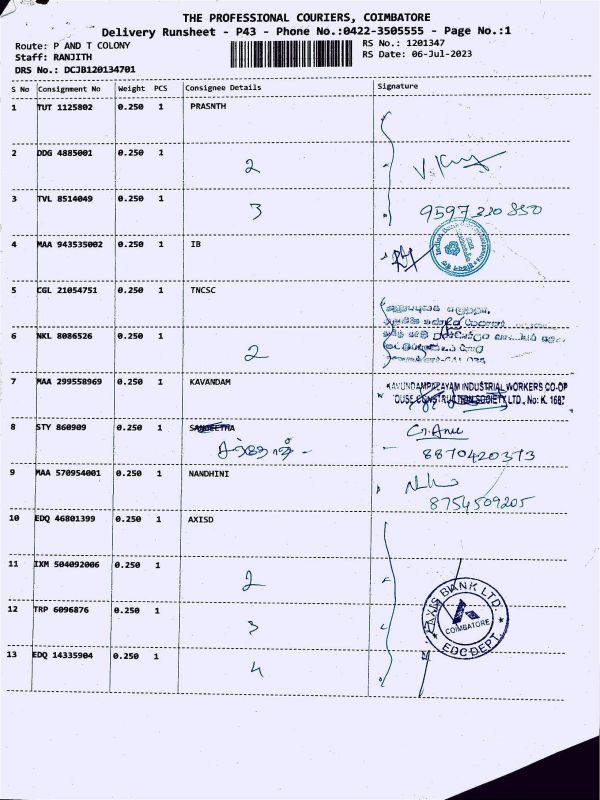 THE PROFESSIONAL COURIERS, COIMBATORE
Delivery Runsheet - P43 - Phone No.:0422-3505555 - Page No.:1
Route: P AND T COLONY
RS No.: 1201347
Staff: RANJITH
RS Date: 06-Jul-2023
DRS No.: DCJB120134701
S No Consignment No Weight PCS Consignee Details Signature
1 TUT 1125802 0.250 1 PRASNTH
2 DDG 4885001 0.250 1 2
3 TVL 8514049 0.250 1 3 9597320850
4 MAA 943535002 0.250 1 IB
5 CGL 21054751 0.250 1 TNCSC
6 NKL 8086526 0.250 1 2
7 MAA 299558969 0.250 1 KAVANDAM
KAVUNDAMPALAYAM INDUSTRIAL WORKERS CO-OP
OUSE CONSTRUCTION SOCIETY LTD., No: K. 1687
8 STY 860909 0.250 1 SANGEETHA
8870420373
9 MAA 570954001 0.250 1 NANDHINI
8754509205
10 EDQ 46801399 0.250 1 AXISD
11 IXM 504092006 0.250 1 2
AXIS BANK LTD.
COIMBATORE
EDC DEPT.
12 TRP 6096876 0.250 1 3
13 EDQ 14335904 0.250 1 4